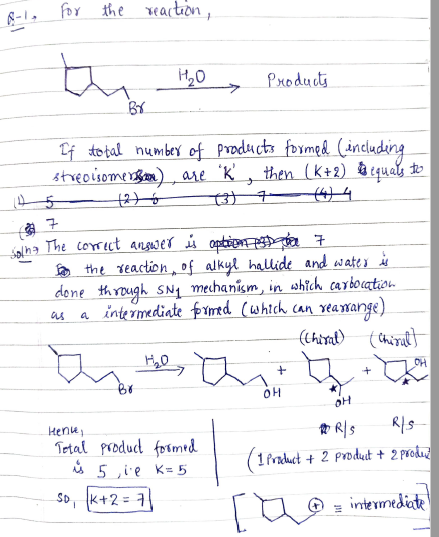 Q-1. For the reaction,
H2O
Products
Br
If total number of products formed (including
streoisomers), are 'K', then (K+2) is equals to
(1) 5 (2) 6 (3) 7 (4) 4
7
Soln→ The correct answer is option (3) 7
the reaction, of alkyl hallide and water is
done through SN1 mechanism, in which carbocation
as a intermediate formed (which can rearrange)
(Chiral) (Chiral)
H2O
Br
OH
+
OH
+
OH
R/S R/S
Hence,
Total product formed
is 5, i.e K=5
(1 Product + 2 product + 2 produc
So, K+2 = 7
+ ≡ intermediate